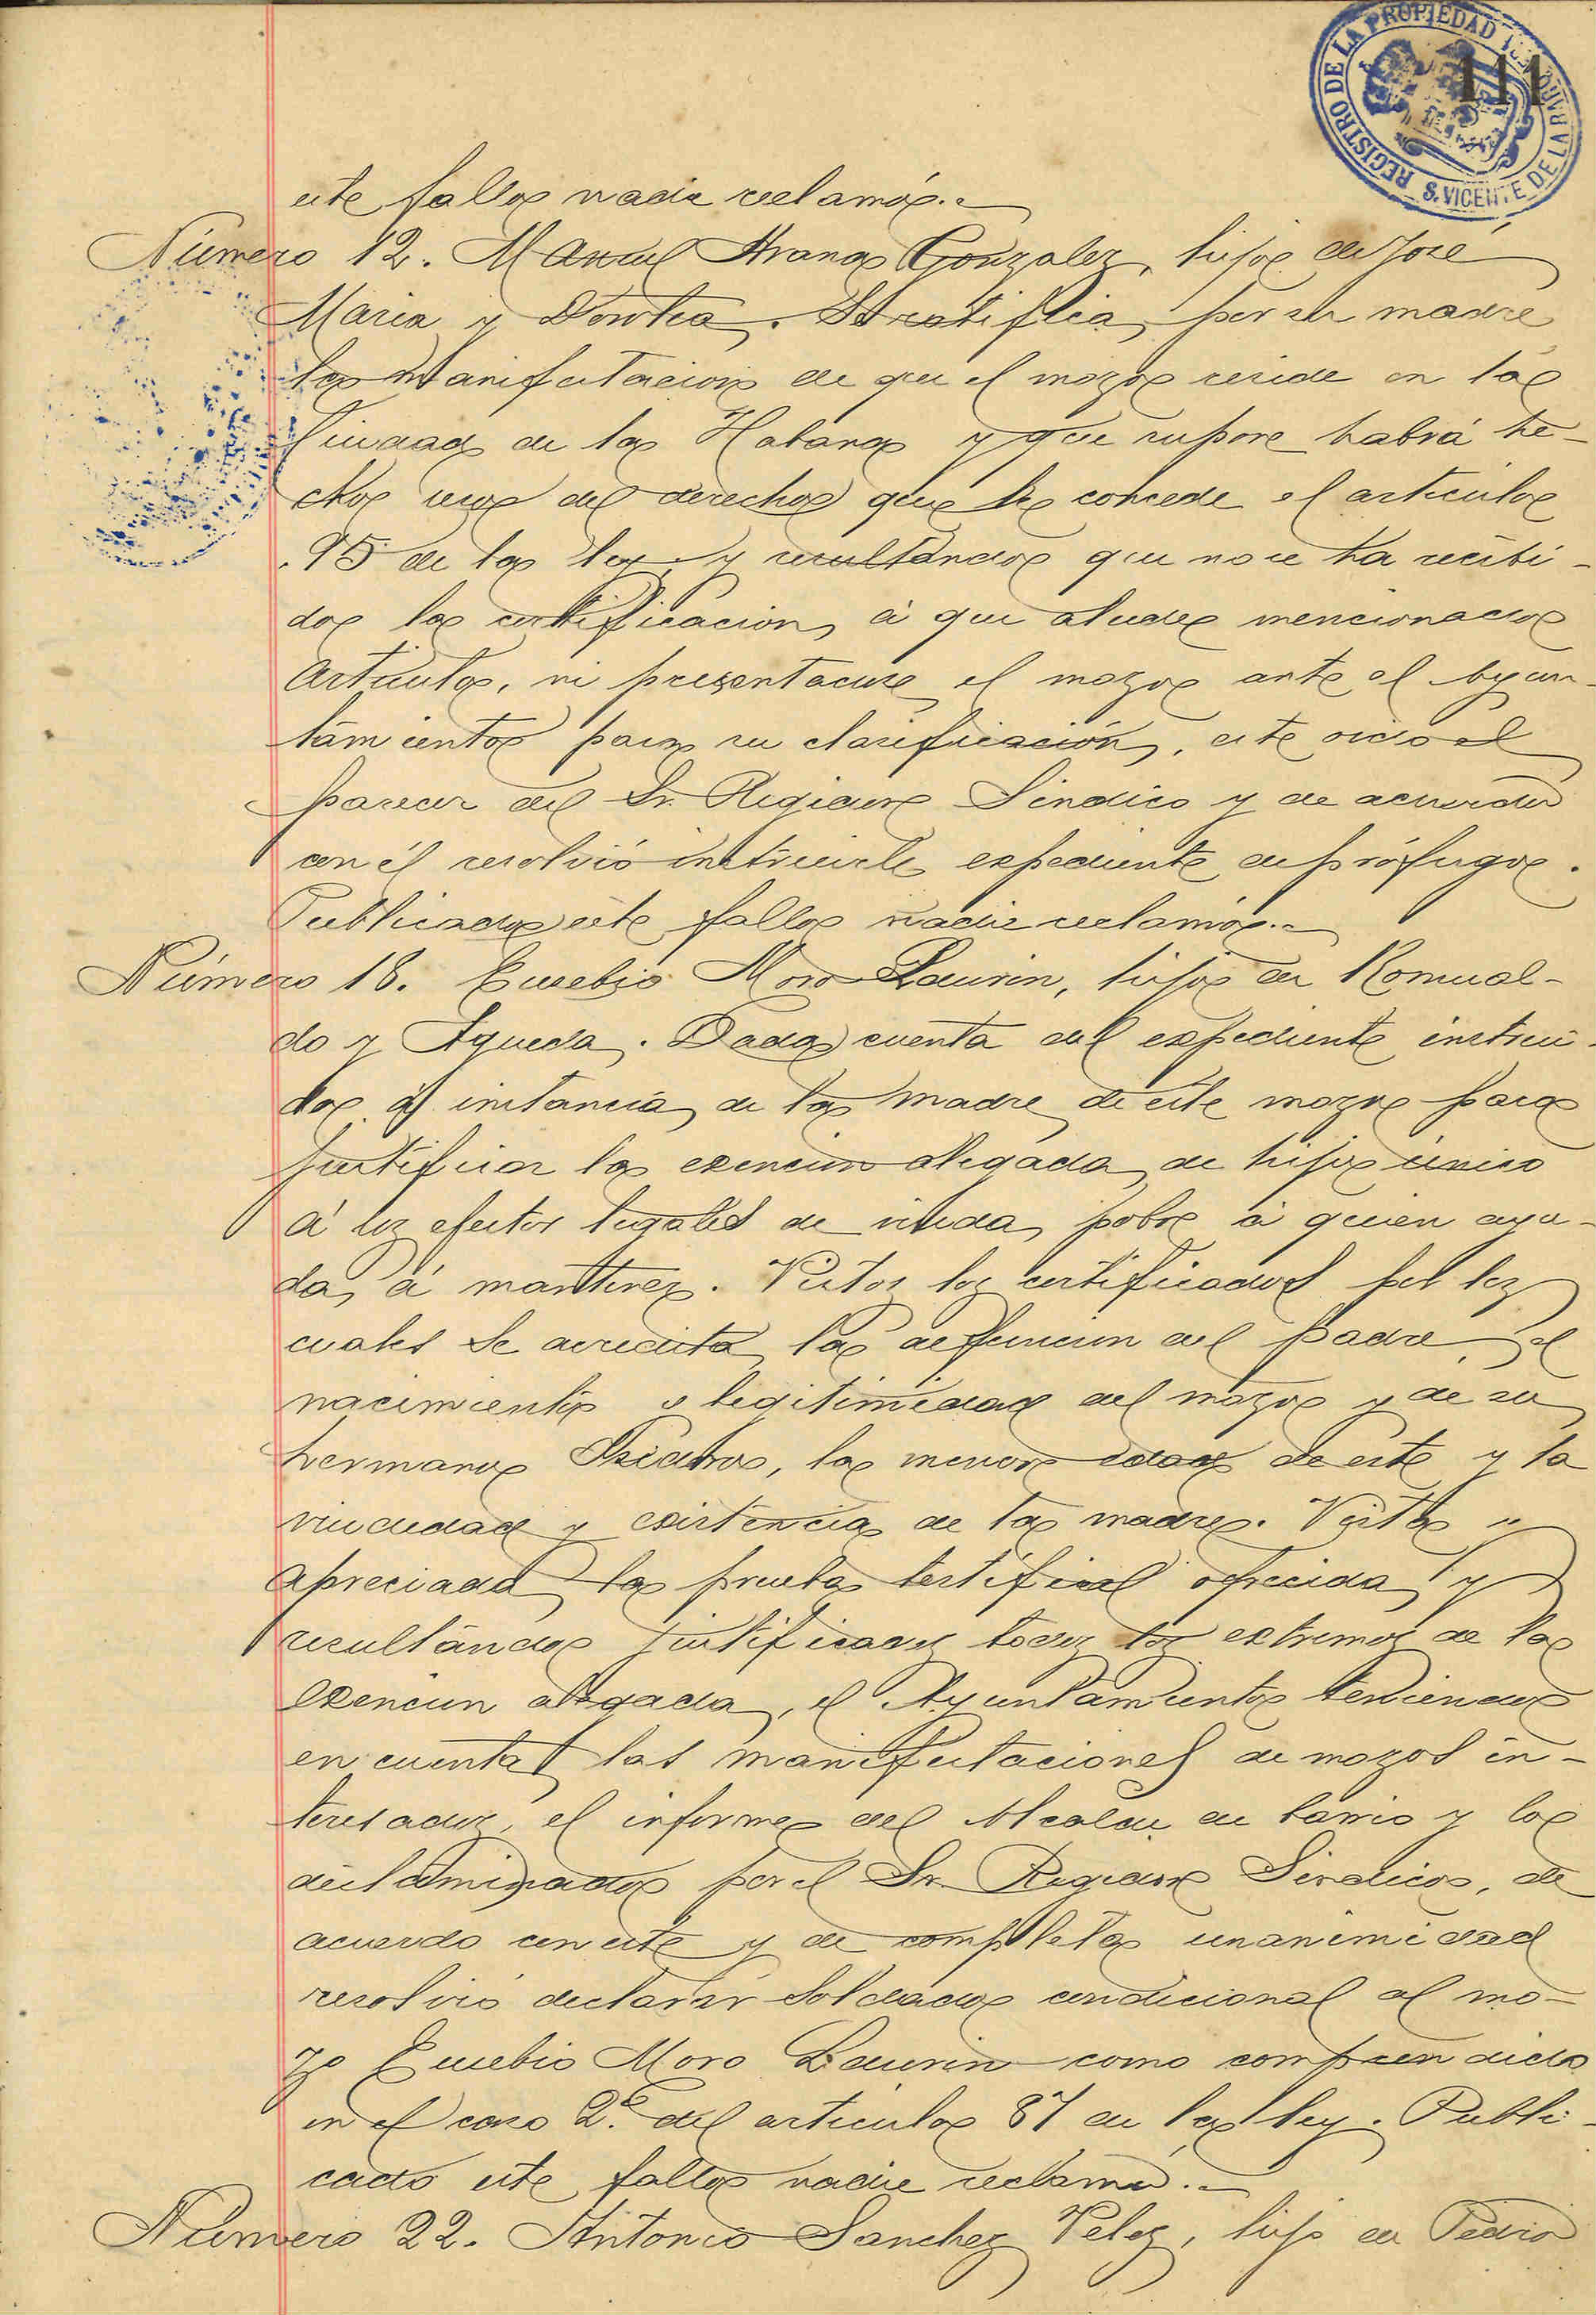 REGISTRO DE LA PROPIEDAD
S. VICENTE DE LA BARQUERA
111
este fallo nadie reclamó.
Número 12. Manuel Arana Gonzalez, hijo de José
Maria y Dorotea. Se ratifica por su madre
la manifestacion de que el mozo reside en la
Ciudad de la Habana y que supone habrá he-
cho uso del derecho que le concede el articulo
95 de la ley y resultando que no se ha recibi-
do la certificacion á que alude mencionado
articulo, ni presentadose el mozo ante el Ayun-
tamiento para su clasificación, este oido el
parecer del Sr. Regidor Sindico y de acuerdo
con él resolvió instruirle expediente de prófugo.
Publicado este fallo nadie reclamó.
Número 18. Eusebio Moro Laurin, hijo de Romual-
do y Agueda. Dada cuenta del expediente instrui-
do á instancia de la madre de este mozo para
justificar la exencion alegada de hijo único
á los efectos legales de viuda pobre á quien ayu-
da á mantener. Vistos los certificados por los
cuales se acredita la defuncion del padre, el
nacimiento y legitimidad del mozo y de su
hermano Isidro, la menor edad de este y la
viudedad y existencia de la madre. Vista y
apreciada la prueba testifical ofrecida y
resultando justificados todos los extremos de la
exencion alegada, el Ayuntamiento teniendo
en cuenta las manifestaciones de mozos in-
teresados, el informe del Alcalde de barrio y lo
dictaminado por el Sr. Regidor Sindico, de
acuerdo con este y de completa unanimidad
resolvió declarar soldado condicional al mo-
zo Eusebio Moro Laurin como comprendido
en el caso 2º del articulo 87 de la ley. Publi-
cado este fallo nadie reclamó.
Número 22. Antonio Sanchez Velez, hijo de Pedro